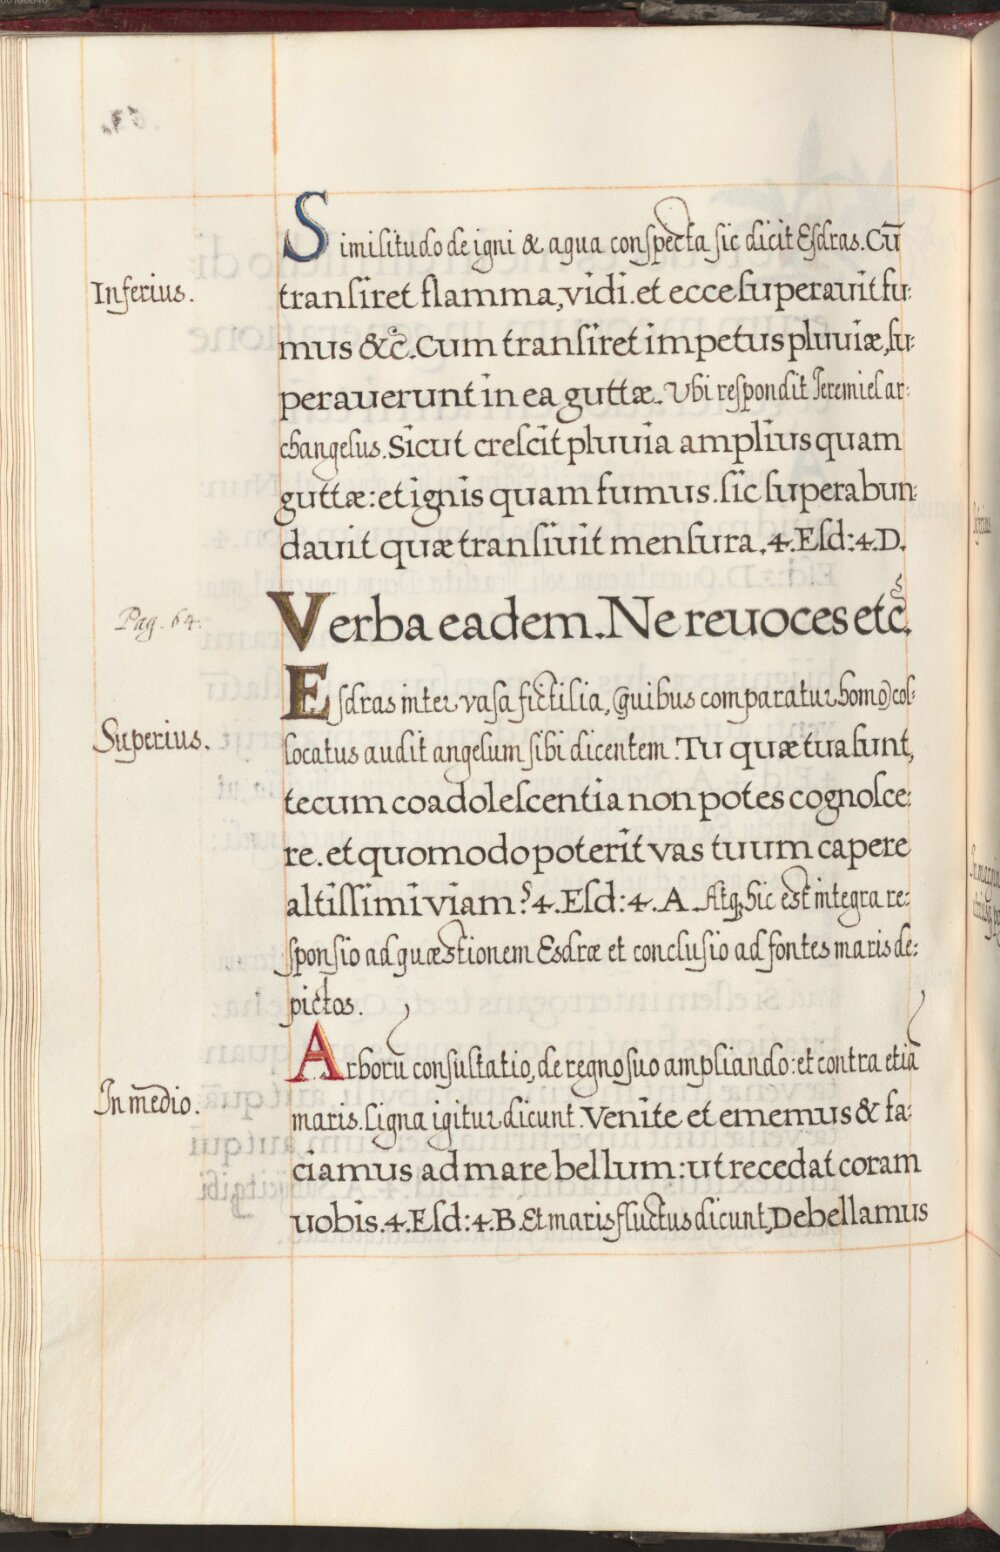 Similitudo de igni & aqua conspecta sic dicit Esdras. Cū
Inferius.
transiret flamma, vidi. et ecce superavit fu:
mus &c̄. Cum transiret impetus pluviæ, su:
peraverunt in ea guttæ. Ubi respondit Jeremiel ar:
changelus. Sicut crescit pluvia amplius quam
guttæ: et ignis quam fumus. sic superabun:
davit quæ transivit mensura. 4. Esd: 4. D.
Verba eadem. Ne revoces etc̄.
Pag. 64.
Esdras inter vasa fictilia, (quibus comparatur homo) col:
Superius.
locatus audit angelum sibi dicentem. Tu quæ tua sunt,
tecum coadolescentia non potes cognosce:
re. et quomodo poterit vas tuum capere
altissimi viam? 4. Esd: 4. A. Atq3 hic est integra re:
sponsio ad quæstionem Esdræ et conclusio ad fontes maris de:
pictos.
Arborū consultatio, de regno suo ampliando: et contra etiā
In medio.
maris. Ligna igitur dicunt. Venite et ememus & fa:
ciamus ad mare bellum: ut recedat coram
vobis. 4. Esd: 4. B. Et maris fluctus dicunt, Debellamus